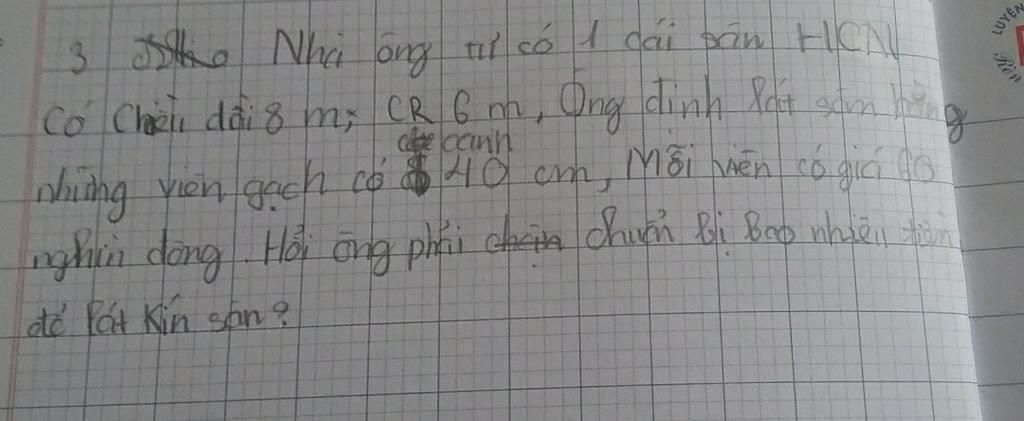 3 Nhà ông tư có 1 cái sân HCN
Có Chiều dài 8 m; CR 6 m, Ông định lát sân bằng
những viên gạch có cạnh 40 cm, Mỗi viên có giá
nghìn đồng. Hỏi ông phải chuẩn Bị Bao nhiêu tiền
để lát kín sân?
LUYỆN